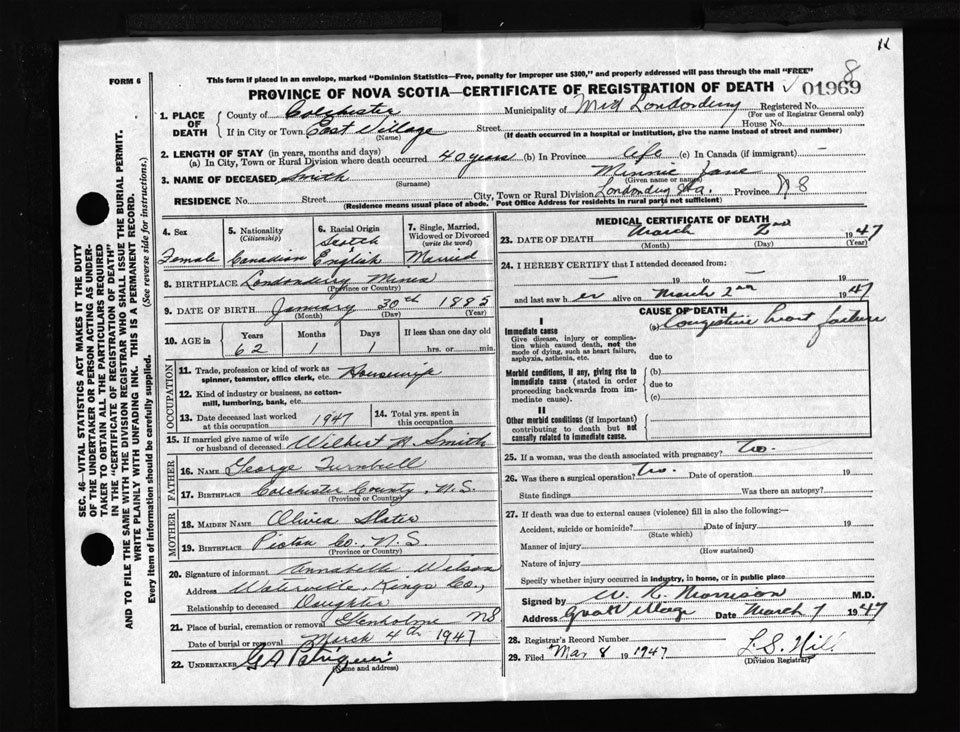 11
FORM 6
This form if placed in an envelope, marked "Dominion Statistics—Free, penalty for improper use $300," and properly addressed will pass through the mail "FREE"
8
PROVINCE OF NOVA SCOTIA—CERTIFICATE OF REGISTRATION OF DEATH 01969
1. PLACE OF DEATH
County of Colchester Municipality of Mid Londonderry Registered No.
(For use of Registrar General only)
If in City or Town East Village Street House No.
(Name) (If death occurred in a hospital or institution, give the name instead of street and number)
2. LENGTH OF STAY (in years, months and days)
(a) In City, Town or Rural Division where death occurred 40 years (b) In Province Life (c) In Canada (if immigrant) —
3. NAME OF DECEASED Smith Minnie Jane
(Surname) (Given name or names)
RESIDENCE No. Street City, Town or Rural Division Londonderry Sta. Province N S
(Residence means usual place of abode. Post Office Address for residents in rural parts not sufficient)
4. Sex Female
5. Nationality (Citizenship) Canadian
6. Racial Origin Scotch English
7. Single, Married, Widowed or Divorced (write the word) Married
8. BIRTHPLACE Londonderry Mines
(Province or Country)
9. DATE OF BIRTH January 30th 1885
(Month) (Day) (Year)
10. AGE in Years 62 Months 1 Days 1 If less than one day old hrs. or min.
OCCUPATION
11. Trade, profession or kind of work as spinner, teamster, office clerk, etc. Housewife
12. Kind of industry or business, as cotton-mill, lumbering, bank, etc.
13. Date deceased last worked at this occupation 1947
14. Total yrs. spent in this occupation
15. If married give name of wife or husband of deceased Wilbert R. Smith
FATHER
16. NAME George Turnbull
17. BIRTHPLACE Colchester County, N.S.
(Province or Country)
MOTHER
18. MAIDEN NAME Olivia Slater
19. BIRTHPLACE Pictou Co., N.S.
(Province or Country)
20. Signature of informant Annabelle Wilson
Address Waterville, Kings Co.,
Relationship to deceased Daughter
21. Place of burial, cremation or removal Glenholme NS
Date of burial or removal March 4th 1947
22. UNDERTAKER G A
(Name and address)
MEDICAL CERTIFICATE OF DEATH
23. DATE OF DEATH March 2nd 1947
(Month) (Day) (Year)
24. I HEREBY CERTIFY that I attended deceased from:
— 19 to — 19
and last saw her alive on March 2nd 1947
CAUSE OF DEATH
I
Immediate cause
Give disease, injury or complication which caused death, not the mode of dying, such as heart failure, asphyxia, asthenia, etc.
(a) Congestive heart failure
due to
Morbid conditions, if any, giving rise to immediate cause (stated in order proceeding backwards from immediate cause).
(b)
due to
(c)
II
Other morbid conditions (if important) contributing to death but not causally related to immediate cause.
25. If a woman, was the death associated with pregnancy? No.
26. Was there a surgical operation? No. Date of operation 19
State findings Was there an autopsy?
27. If death was due to external causes (violence) fill in also the following:—
Accident, suicide or homicide? Date of injury 19
(State which)
Manner of injury
(How sustained)
Nature of injury
Specify whether injury occurred in industry, in home, or in public place
Signed by W. R. Morrison M.D.
Address Great Village Date March 7 1947
28. Registrar's Record Number
29. Filed Mar 8 1947 L.S. Hill
(Division Registrar)
SEC. 46—VITAL STATISTICS ACT MAKES IT THE DUTY
OF THE UNDERTAKER OR PERSON ACTING AS UNDER-
TAKER TO OBTAIN ALL THE PARTICULARS REQUIRED
IN THE "CERTIFICATE OF REGISTRATION OF DEATH"
AND TO FILE THE SAME WITH THE DIVISION REGISTRAR WHO SHALL ISSUE THE BURIAL PERMIT.
WRITE PLAINLY WITH UNFADING INK. THIS IS A PERMANENT RECORD.
Every item of Information should be carefully supplied. (See reverse side for instructions.)